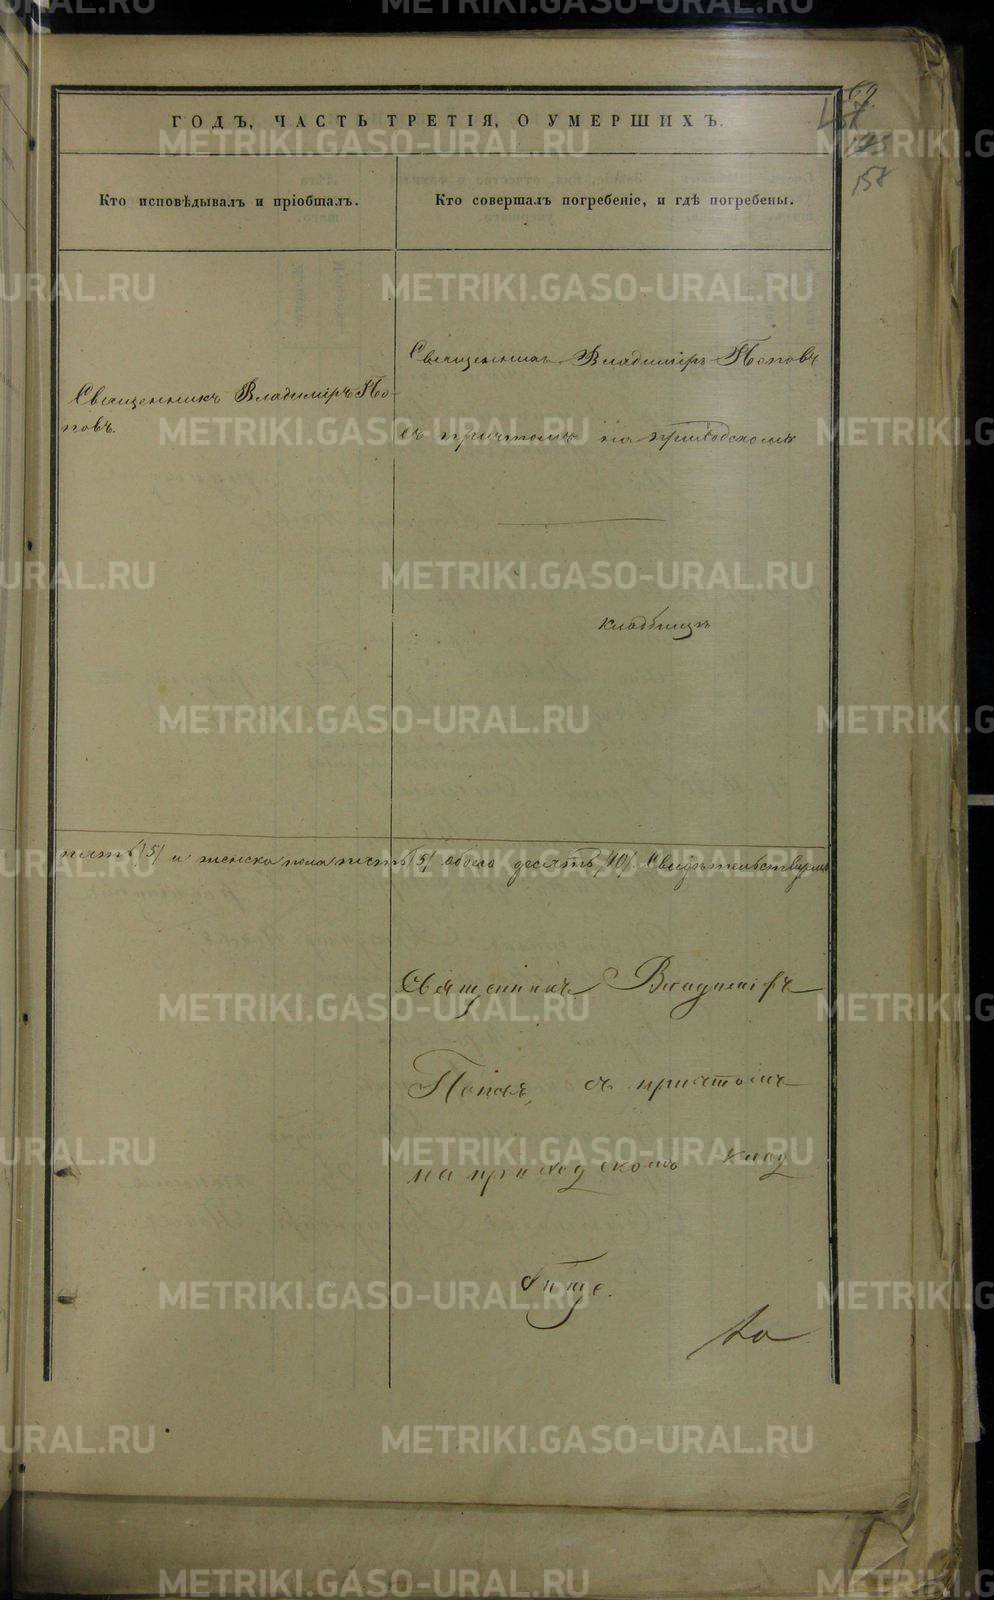 69.
157
158
ГОДЪ, ЧАСТЬ ТРЕТІЯ, О УМЕРШИХЪ.
Кто исповѣдывалъ и пріобщалъ.
Кто совершалъ погребеніе, и гдѣ погребены.
Священникъ Владиміръ По-
повъ.
Священникъ Владиміръ Поповъ
съ причтомъ на приходскомъ
кладбищѣ
пять /5/ и женска пола пять /5/ обоего десять /10/. Свидѣтельствуемъ
Священникъ Владиміръ
Поповъ, съ причтомъ
на приходскомъ клад
бище.
METRIKI.GASO-URAL.RU